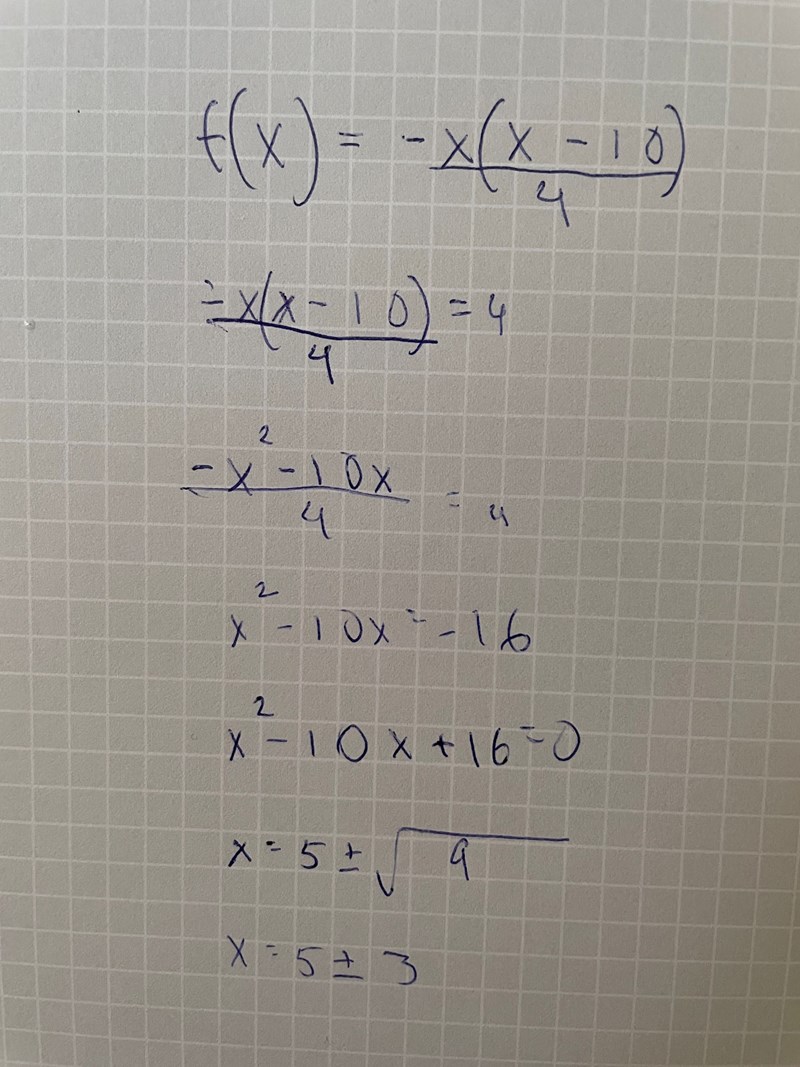 f(x) = -x(x - 10)/4
-x(x - 10)/4 = 4
-x² - 10x/4 = 4
x² - 10x = -16
x² - 10x + 16 = 0
x = 5 ± √9
x = 5 ± 3